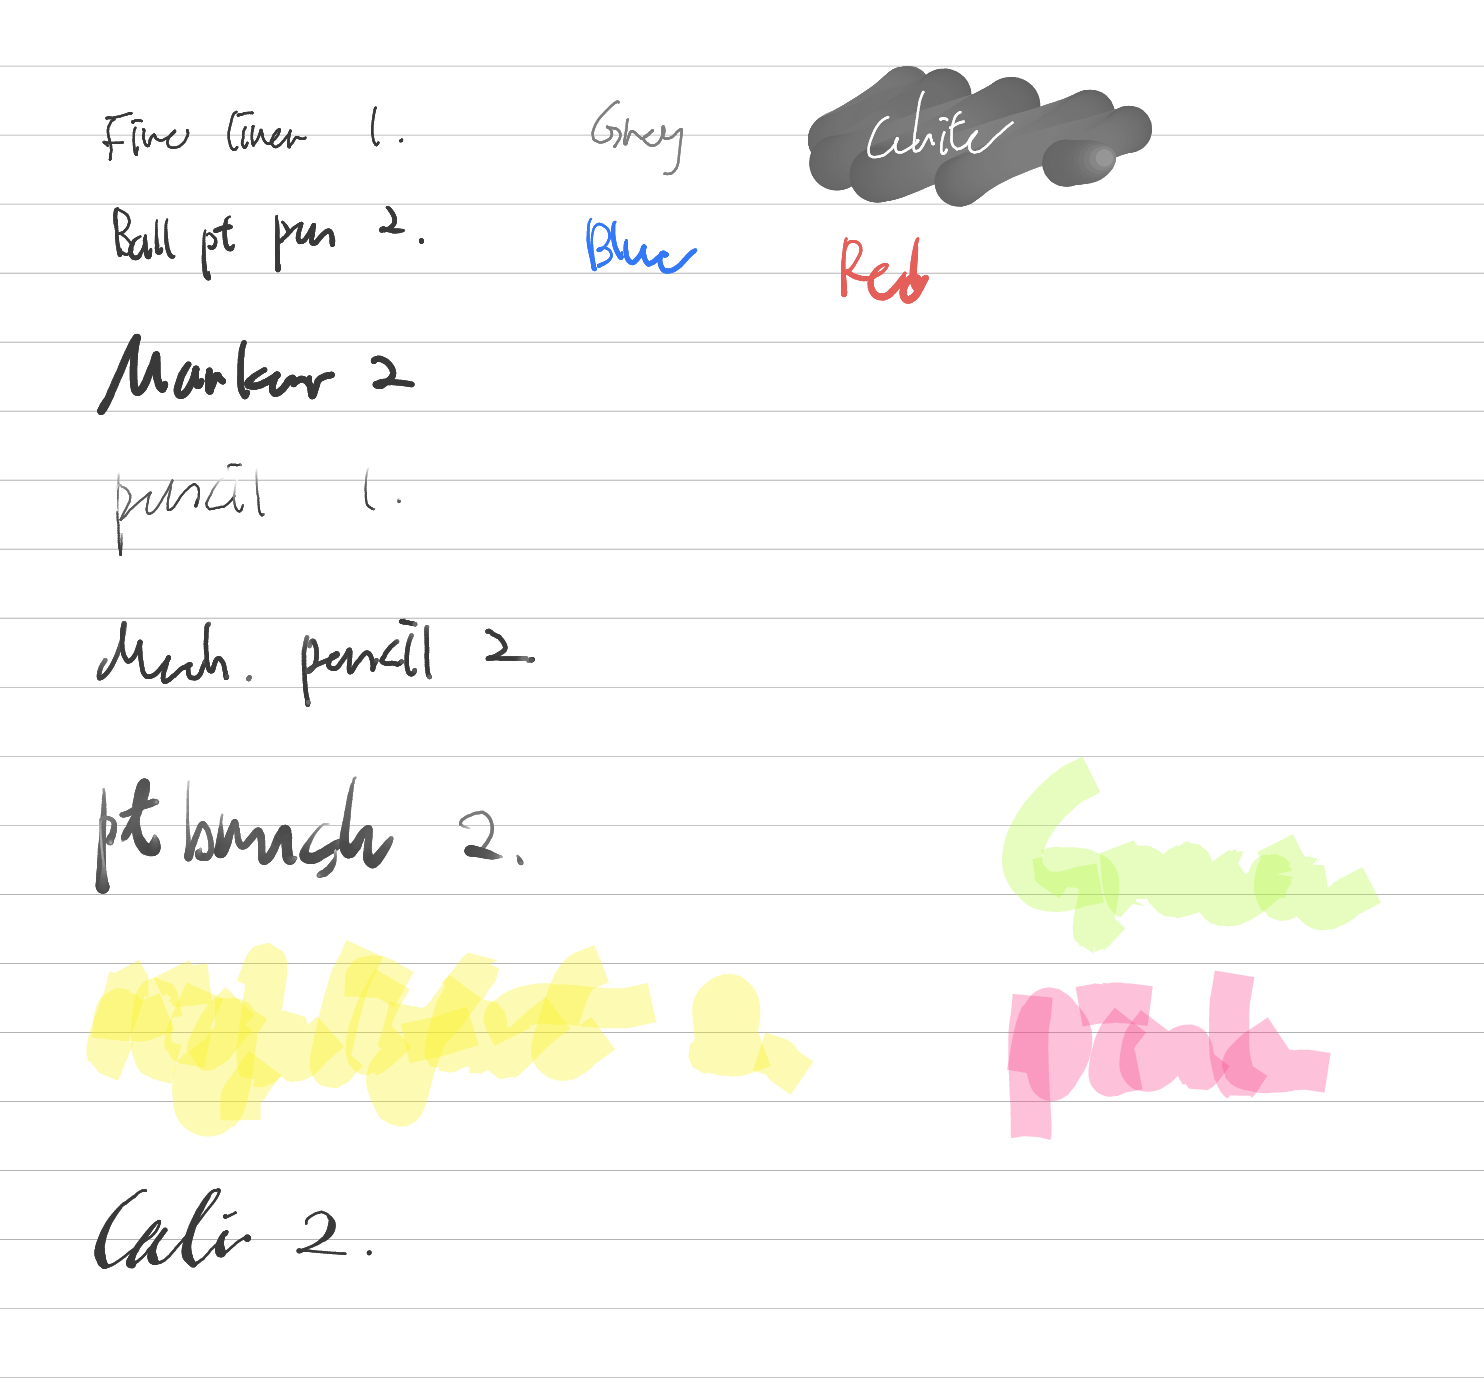 Fine liner 1. Grey White
Ball pt pen 2. Blue Red
Marker 2
pencil 1.
Mech. pencil 2
pt brush 2. Green
Highlighter 2. Pink
Cali 2.